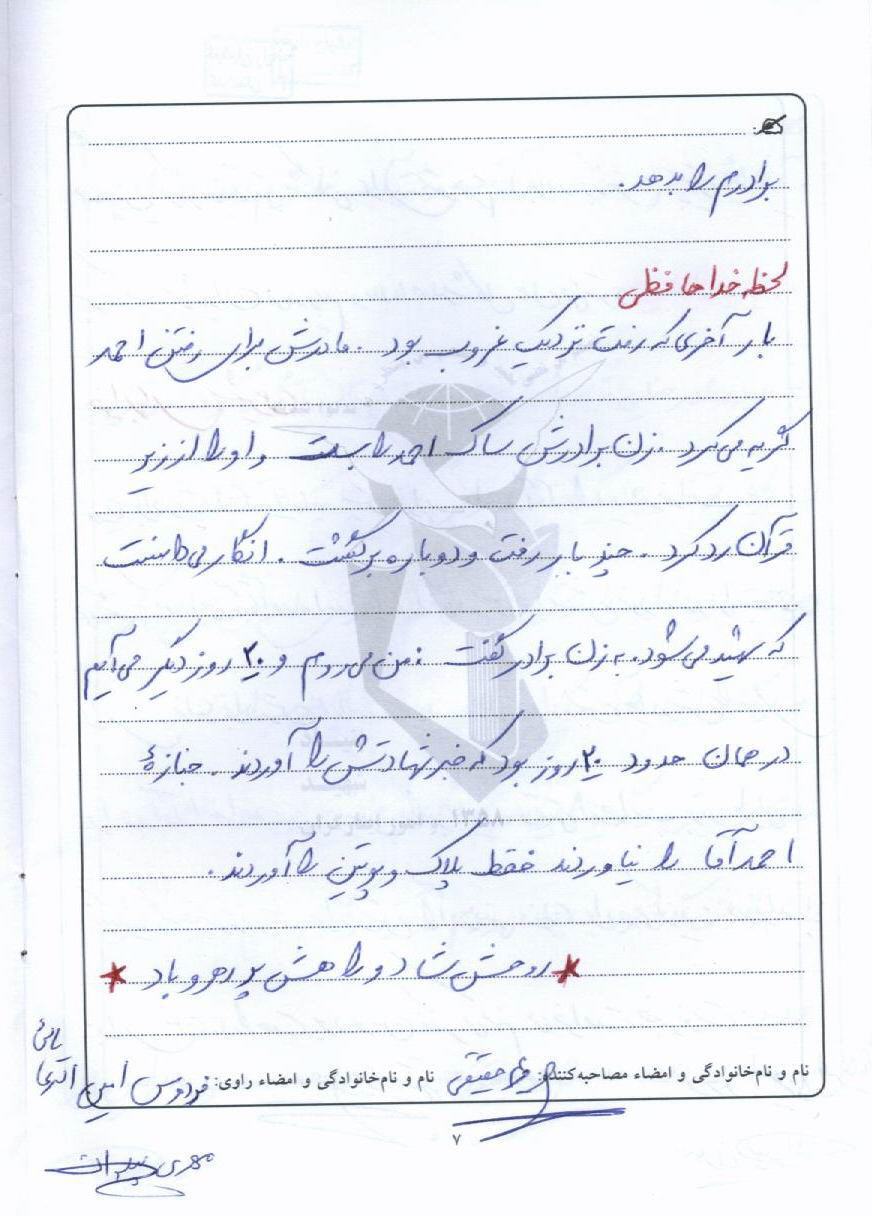 برادرم را بدهد.
لحظه خداحافظی
بار آخری که رفت نزدیک غروب بود. مادرش برای رفتن احمد
گریه می‌کرد. زن برادرش ساک احمد را بست و او را از زیر
قرآن رد کرد. چند بار رفت و دوباره برگشت. انگار می‌دانست
که شهید می‌شود. به زن برادر گفت: من می‌روم و ۲۰ روز دیگر می‌آیم
در همان حدود ۲۰ روز بود که خبر شهادتش را آوردند. جنازهٔ
احمد آقا را نیاوردند فقط پلاک و پوتین را آوردند.
* روحش شاد و راهش پر رهرو باد *
نام و نام‌خانوادگی و امضاء مصاحبه‌کننده: حقیقی نام و نام‌خانوادگی و امضاء راوی: فردوس امین
۷
مهری